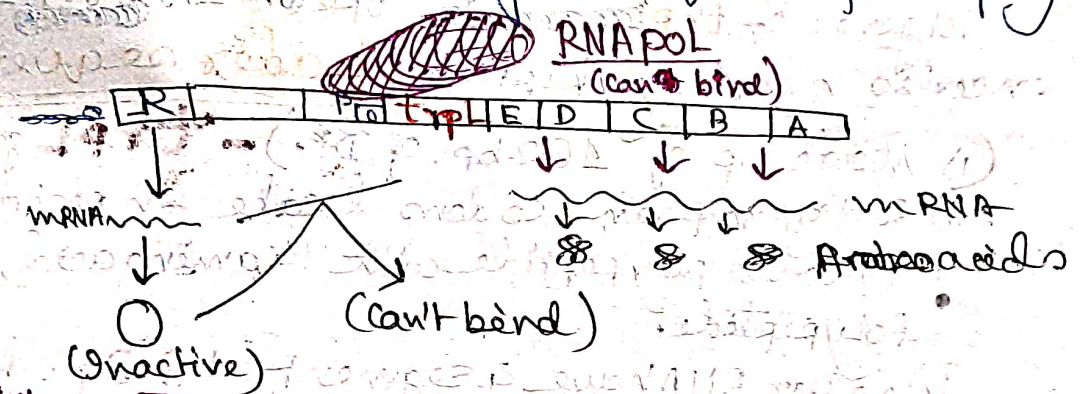 RNA pol
(can bind)
R Pro trpL E D C B A
mRNA mRNA
acids
(can't bend)
(Inactive)